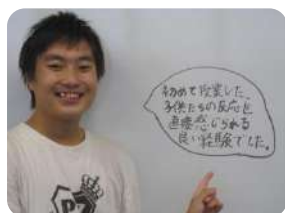 初めて授業した、
子供たちの反応を
直接感じられる
良い経験でした。
P7